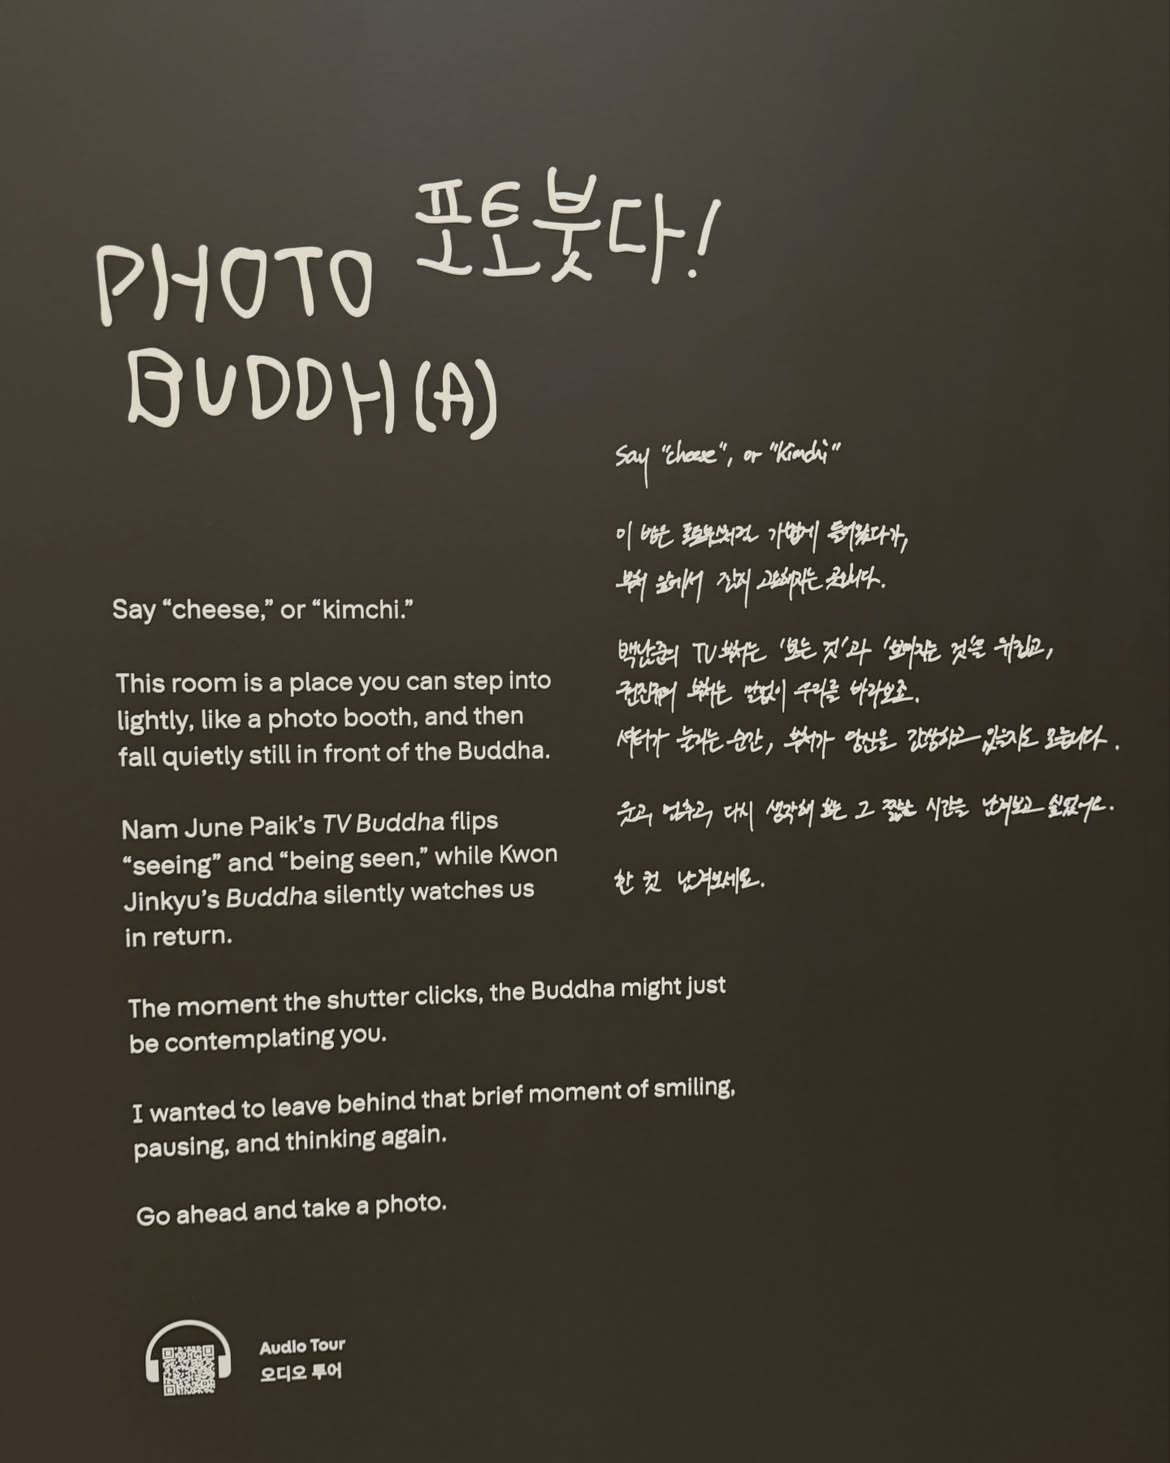 포토붓다!
PHOTO
BUDDH(A)
Say "cheese", or "kimchi"
이 방은 포토부스처럼 가볍게 들어왔다가,
부처 앞에서 잠시 고요해지는 곳입니다.
백남준의 TV부처는 '보는 것'과 '보여지는 것'을 뒤집고,
권진규의 부처는 말없이 우리를 바라보죠.
셔터가 눌리는 순간, 부처가 당신을 감상하고 있을지도 모릅니다.
웃고, 멈추고, 다시 생각해 보는 그 짧은 시간을 남겨보고 싶었어요.
한 컷 남겨보세요.
Say “cheese,” or “kimchi.”
This room is a place you can step into
lightly, like a photo booth, and then
fall quietly still in front of the Buddha.
Nam June Paik’s TV Buddha flips
“seeing” and “being seen,” while Kwon
Jinkyu’s Buddha silently watches us
in return.
The moment the shutter clicks, the Buddha might just
be contemplating you.
I wanted to leave behind that brief moment of smiling,
pausing, and thinking again.
Go ahead and take a photo.
Audio Tour
오디오 투어